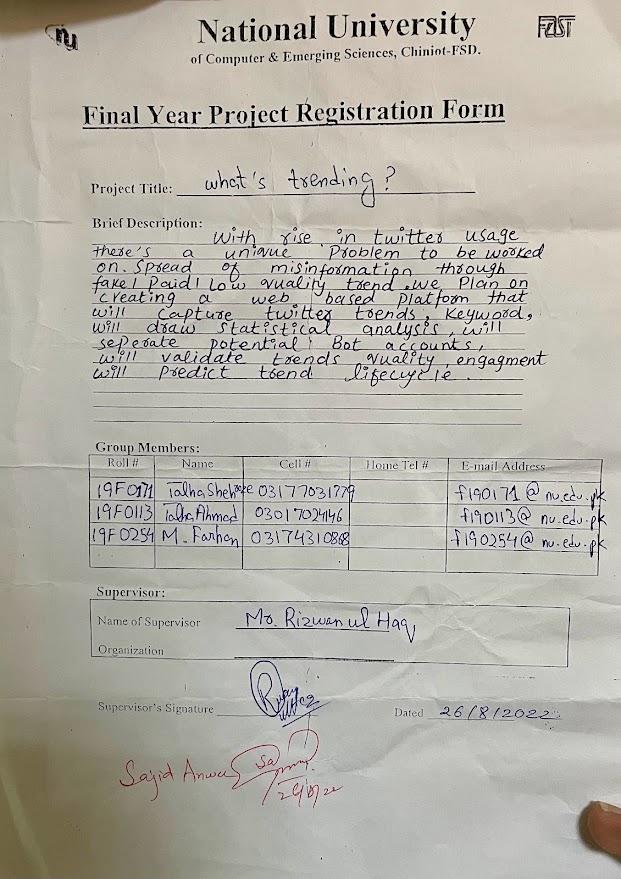 nu
National University
FAST
of Computer & Emerging Sciences, Chiniot-FSD.
Final Year Project Registration Form
Project Title: what's trending?
Brief Description:
With rise in twitter usage
there's a unique Problem to be worked
on. Spread of misinformation through
fake/ Paid/ Low quality trend. we Plan on
creating a web based Platform that
will capture twitter trends, Keyword,
will draw Statistical analysis, will
seperate potential Bot accounts,
will validate trends quality, engagment
will Predict trend lifecycle.
Group Members:
Roll # Name Cell # Home Tel # E-mail Address
19F0171 Talha 03177031779 f190171@nu.edu.pk
19F0113 Talha Ahmad 03017024146 f190113@nu.edu.pk
19F0254 M. Farhan 03174310868 f190254@nu.edu.pk
Supervisor:
Name of Supervisor Mr. Rizwan ul Haq
Organization
Supervisor's Signature Dated 26/8/2022
Sajid Anwar